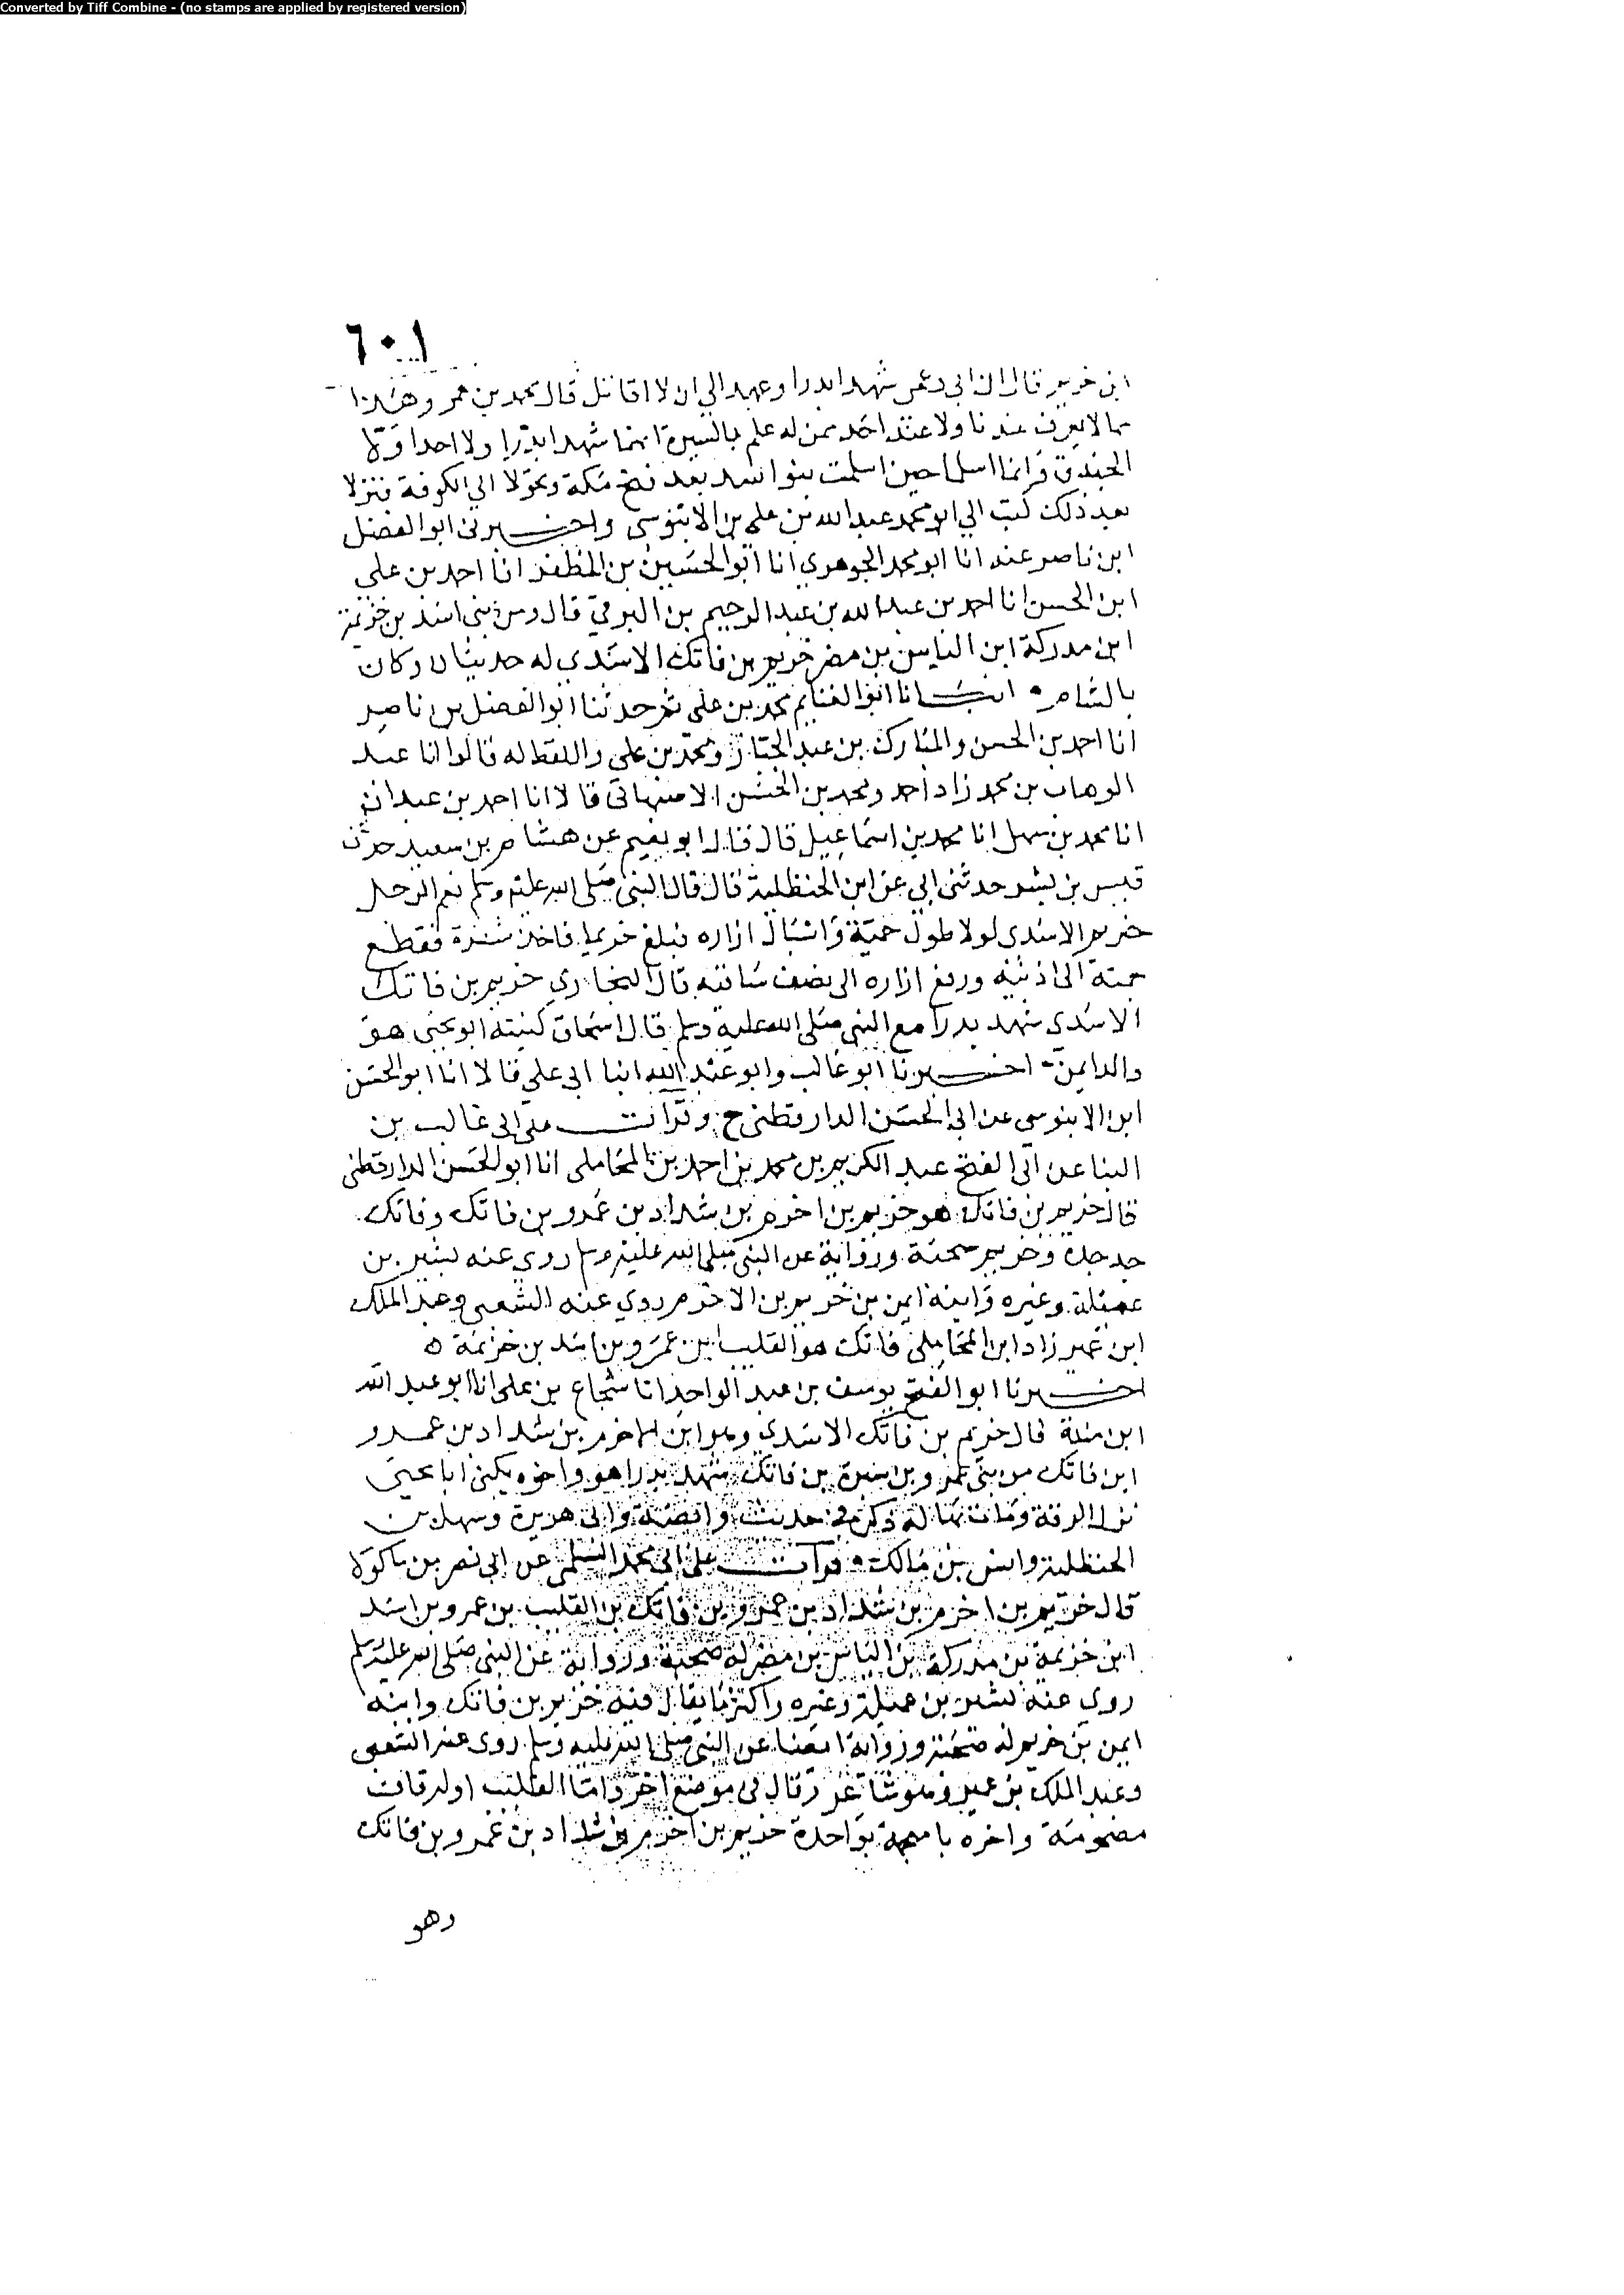 Converted by Tiff Combine - (no stamps are applied by registered version)
٦٠١
ابن خريم قال ان ابي وعمي شهدا بدرا وعهدا الي ان لا اقاتل قال محمد بن عمر وهذا
مما لا يعرف عندنا ولا عند احد ممن له علم بالسيرة انهما شهدا بدرا ولا احدا ولا
الخندق وانما اسلما حين اسلمت بنوا اسد بعد فتح مكة وتحولا الي الكوفة فنزلا
بعد ذلك كتب الي ابو محمد عبد الله بن علي بن الابنوسي واخبرني ابو الفضل
ابن ناصر عنه انا ابو محمد الجوهري انا ابو الحسين بن المظفر انا احمد بن علي
ابن الحسن انا احمد بن عبد الله بن عبد الرحيم بن البرقي قال ومن بني اسد بن خزيمة
ابن مدركة ابن الياس بن مضر خريم بن فاتك الاسدي له حديثان وكان
بالشام • انبانا ابو الغنايم محمد بن علي ثم حدثنا ابو الفضل بن ناصر
انا احمد بن الحسن والمبارك بن عبد الجبار ومحمد بن علي واللفظ له قالوا انا عبد
الوهاب بن محمد زاد احمد ومحمد بن الحسن الاصبهاني قالا انا احمد بن عبدان
انا محمد بن سهل انا محمد بن اسماعيل قال قال ابو نعيم عن هشام بن سعيد حدثنا
قيس بن بشر حدثني ابي عن ابن الحنظلية قال قال النبي صلى الله عليه وسلم نعم الرجل
خريم الاسدي لولا طول جمته واسبال ازاره فبلغ خريما فاخذ شفرة فقطع
جمته الى اذنيه ورفع ازاره الى نصف ساقيه قال البخاري خريم بن فاتك
الاسدي شهد بدرا مع النبي صلى الله عليه وسلم قال اسحاق كنيته ابو يحيى هو
والد ايمن • اخبرنا ابو غالب وابو عبد الله ابنا ابي علي قالا انا ابو الحسن
ابن الابنوسي عن ابي الحسن الدارقطني ح وقرات على ابي غالب بن
البنا عن ابي الفتح عبد الكريم بن محمد بن احمد بن المحاملي انا ابو الحسن الدارقطني
قال خريم بن فاتك هو خريم بن اخرم بن شداد بن عمرو بن فاتك وفاتك
جد جده وخريم صحبة ورواية عن النبي صلى الله عليه وسلم روي عنه بشير بن
عميلة وغيره وابنه ايمن بن خريم بن الاخرم روي عنه الشعبي وعبد الملك
ابن عمير زاد ابن المحاملي فاتك هو القليب بن عمرو بن اسد بن خزيمة ه
اخبرنا ابو الفتح يوسف بن عبد الواحد انا شجاع بن علي انا ابو عبد الله
ابن مندة قال خريم بن فاتك الاسدي وهو ابن الاخرم بن شداد بن عمرو
ابن فاتك من بني عمرو بن سبرة بن فاتك شهد بدرا هو واخوه يكنى ابا يحيى
نزل الرقة ومات بها له ذكر في حديث وابصة وابي هريرة وسهل بن
الحنظلية وانس بن مالك • قرات على ابي محمد السلمي عن ابي نصر بن ماكولا
قال خريم بن اخرم بن شداد بن عمرو بن فاتك بن القليب بن عمرو بن اسد
ابن خزيمة بن مدركة بن الياس بن مضر له صحبة ورواية عن النبي صلى الله عليه وسلم
روي عنه بشير بن عميلة وغيره واكثر ما يقال فيه خريم بن فاتك وابنه
ايمن بن خريم له صحبة ورواية ايضا عن النبي صلى الله عليه وسلم روى عنه الشعبي
وعبد الملك بن عمير وهو شاعر وقال في موضع اخر واما القليب اوله قاف
مضمومة واخره با معجمة بواحدة خريم بن اخرم بن شداد بن عمرو بن فاتك
وهو